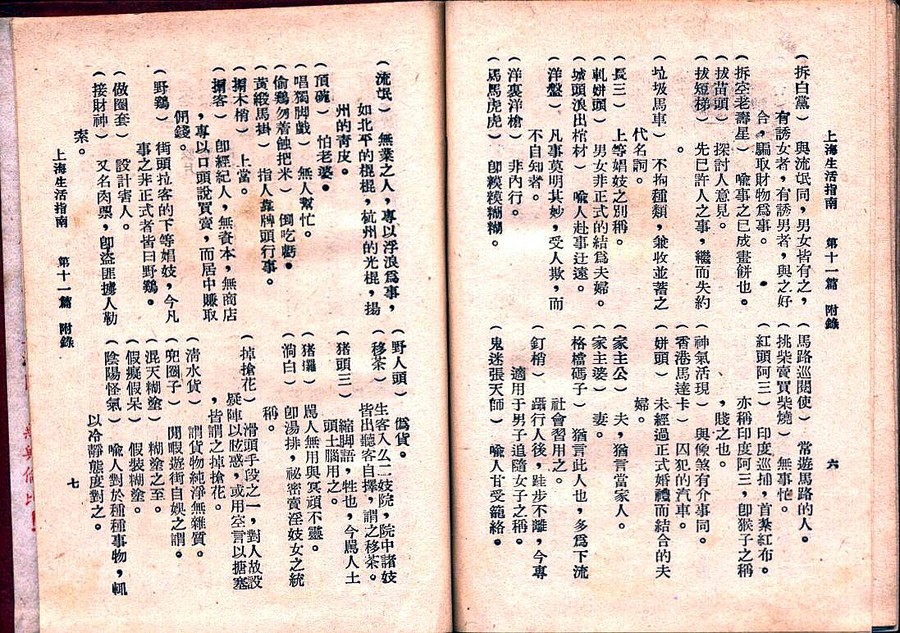 上海生活指南　第十一篇　附錄　六
（拆白黨）　與流氓同，男女皆有之，
有誘女者，有誘男者，與之好
合，騙取財物爲事。
（拆空老壽星）　喩事之已成畫餅也。
（拔苗頭）　探討人意見。
（拔短梯）　先已許人之事，繼而失約
。
（垃圾馬車）　不拘種類，兼收並蓄之
代名詞。
（長三）　上等娼妓之別稱。
（軋姘頭）　男女非正式的結爲夫婦。
（城頭浪出棺材）　喩人赴事迂遠。
（洋盤）　凡事莫明其妙，受人欺，而
不自知者。
（洋裏洋槍）　非內行。
（馬馬虎虎）　卽糢糢糊糊。
（馬路巡閱使）　常遊馬路的人。
（挑柴賣買柴燒）　無事忙。
（紅頭阿三）　印度巡捕，首紮紅布。
亦稱印度阿三，卽猴子之稱
，賤之也。
（神氣活現）　與像煞有介事同。
（香港馬達卡）　囚犯的汽車。
（姘頭）　未經過正式婚禮而結合的夫
婦。
（家主公）　夫，猶言當家人。
（家主婆）　妻。
（格檔碼子）　猶言此人也，多爲下流
社會習用之。
（釘梢）　躡行人後，跬步不離，今專
適用于男子追隨女子之稱。
（鬼迷張天師）　喩人甘受籠絡。
（流氓）　無業之人，專以浮浪爲事，
如北平的棍棍，杭州的光棍，揚
州的靑皮。
（頂碗）　怕老婆。
（唱獨脚戲）　無人幫忙。
（偷鷄勿着蝕把米）　倒吃虧。
（黃緞馬掛）　指人靠牌頭行事。
（掮木梢）　上當。
（掮客）　卽經紀人，無資本，無商店
，專以口頭說買賣，而居中賺取
佣錢。
（野鷄）　街頭拉客的下等娼妓，今凡
事之非正式者皆曰野鷄。
（做圈套）　設計害人。
（接財神）　又名肉票，卽盜匪擄人勒
索。
（野人頭）　僞貨。
（移茶）　生客入么二妓院，院中諸妓
皆出聽客自擇，謂之移茶。
（猪頭三）　縮脚語，牲也，今罵人土
頭土腦用之。
（猪玀）　罵人無用與冥頑不靈。
（淌白）　卽湯排，祕密賣淫妓女之統
稱。
（掉搶花）　滑頭手段之一，對人故設
疑陣以眩惑，或用空言以搪塞
，皆謂之掉搶花。
（淸水貨）　謂貨物純淨無雜質。
（兜圈子）　閒暇遊街自娛之謂。
（混天糊塗）　糊塗之至。
（假癡假呆）　假裝糊塗。
（陰陽怪氣）　喩人對於種種事物，輒
以冷靜態度對之。
上海生活指南　第十一篇　附錄　七